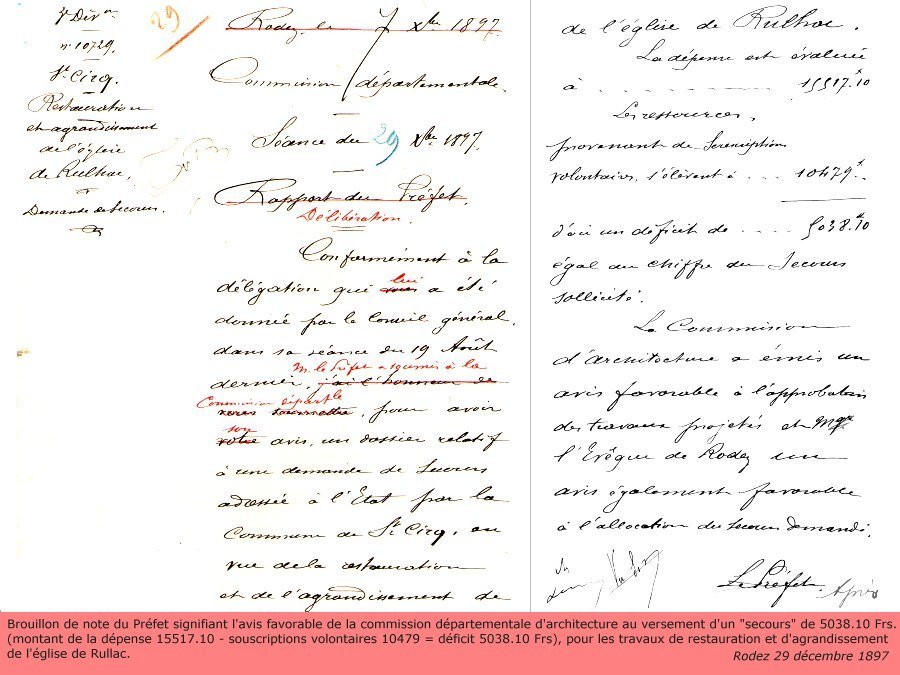 3e Divon
29
n° 10729.
St Cirq.
Restauration
et agrandissement
de l'église
de Rulhac.
Demande de Secours.
Rodez, le 7 Xbre 1897.
Commission départementale.
Séance du 29 Xbre 1897.
Rapport du Préfet.
Délibération.
Conformément à la
délégation qui lui a été
donnée par le Conseil général,
dans sa séance du 19 Août
M. le Préfet a soumis à la
dernier, j'ai l'honneur de
Commission départle
vous soumettre, pour avoir
son
votre avis, un dossier relatif
à une demande de Secours
adressée à l'Etat par la
Commune de St Cirq, en
vue de la restauration
et de l'agrandissement de
de l'église de Rulhac.
La dépense est évaluée
à . . . . . . . . . 15517.10
Les ressources,
provenant de Souscriptions
volontaires, s'élèvent à . . . 10479.
d'où un déficit de . . . . 5038.10
égal au chiffre du Secours
sollicité.
La Commission
d'architecture a émis un
avis favorable à l'approbation
des travaux projetés et Mgr
l'Evêque de Rodez un
avis également favorable
à l'allocation du secours demandé.
Le Préfet.
Après
Brouillon de note du Préfet signifiant l'avis favorable de la commission départementale d'architecture au versement d'un "secours" de 5038.10 Frs.
(montant de la dépense 15517.10 - souscriptions volontaires 10479 = déficit 5038.10 Frs), pour les travaux de restauration et d'agrandissement
de l'église de Rullac.
Rodez 29 décembre 1897